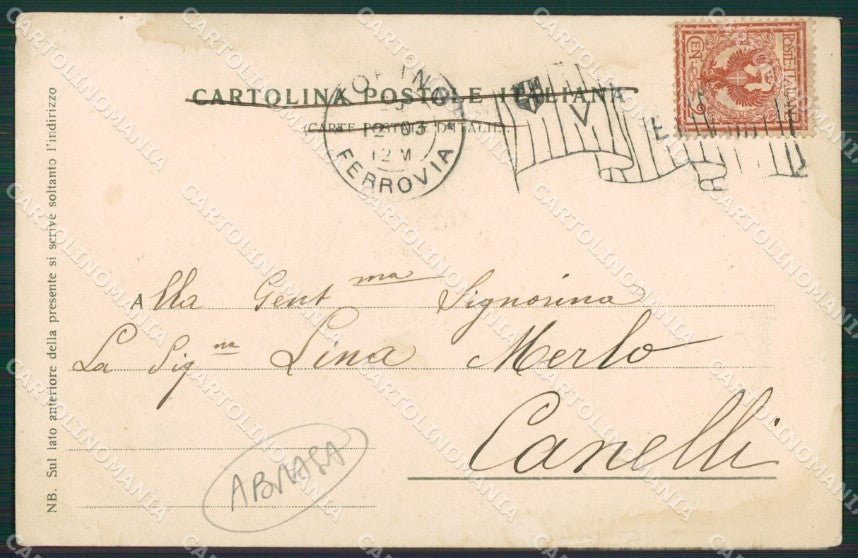 CARTOLINA POSTALE ITALIANA
(CARTE POSTALE D'ITALIE)
TORINO
2 03
12 M
FERROVIA
V E R
POSTE ITALIANE
CEN. 2
NB. Sul lato anteriore della presente si scrive soltanto l'indirizzo
Alla Gent ma Signorina
La Sig na Lina Merlo
Canelli
CARTOLINOMANIA